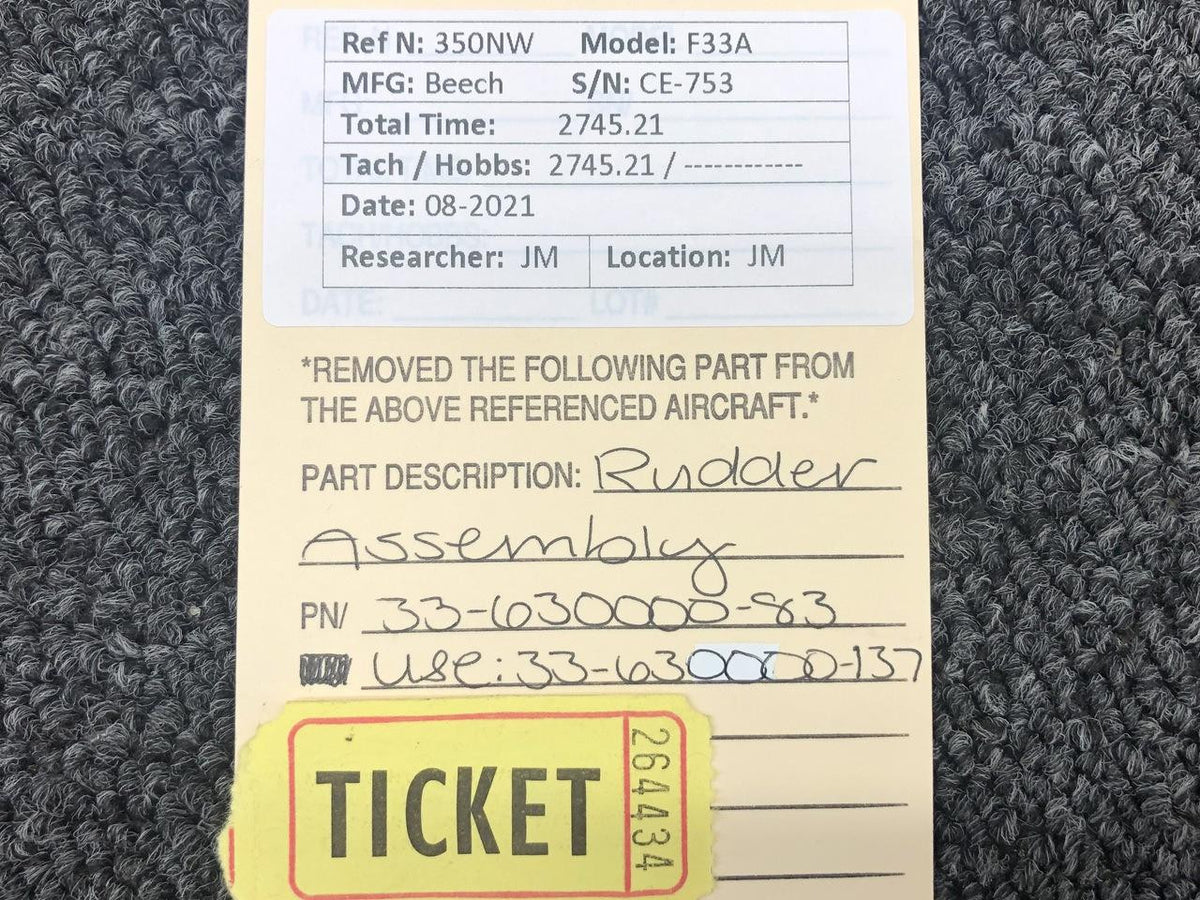 Ref N: 350NW Model: F33A
MFG: Beech S/N: CE-753
Total Time: 2745.21
Tach / Hobbs: 2745.21 / ------------
Date: 08-2021
Researcher: JM Location: JM
DATE: LOT#
*REMOVED THE FOLLOWING PART FROM
THE ABOVE REFERENCED AIRCRAFT.*
PART DESCRIPTION: Rudder
Assembly
PN/ 33-630000-83
Use: 33-630000-137
TICKET
264434